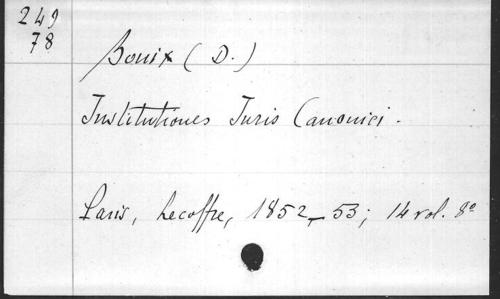 249
78
Bouix (D.)
Institutiones Juris Canonici.
Paris, Lecoffre, 1852-53; 14 vol. 8º